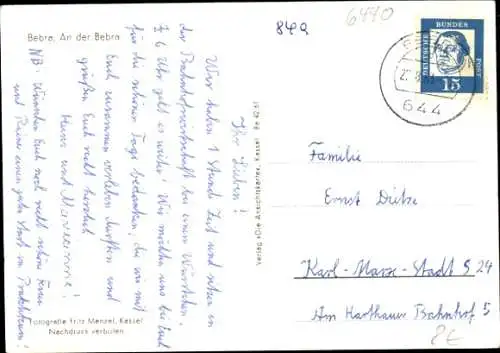 Bebra, An der Bebra
849
6440
DEUTSCHE BUNDES POST
15
644
Ihr Lieben!
Wir haben 1 Stunde Zeit und sitzen in
der Bahnhofswirtschaft bei einem Würstchen.
Uhr geht es weiter! Wir möchten uns bei Euch
für die schönen Tage bedanken, die wir mit
Euch zusammen verleben durften und
grüßen Euch recht herzlich
Heinz und
NB: Wünschen Euch noch recht schöne Ferien
und einen guten
Fotografie Fritz Menzel, Kassel
Nachdruck verboten
Verlag »Die Ansichtskarte«, Kassel Be 42 61
Familie
Ernst Dietze
Karl-Marx-Stadt S 24
Am Harthauer Bahnhof 5
8€